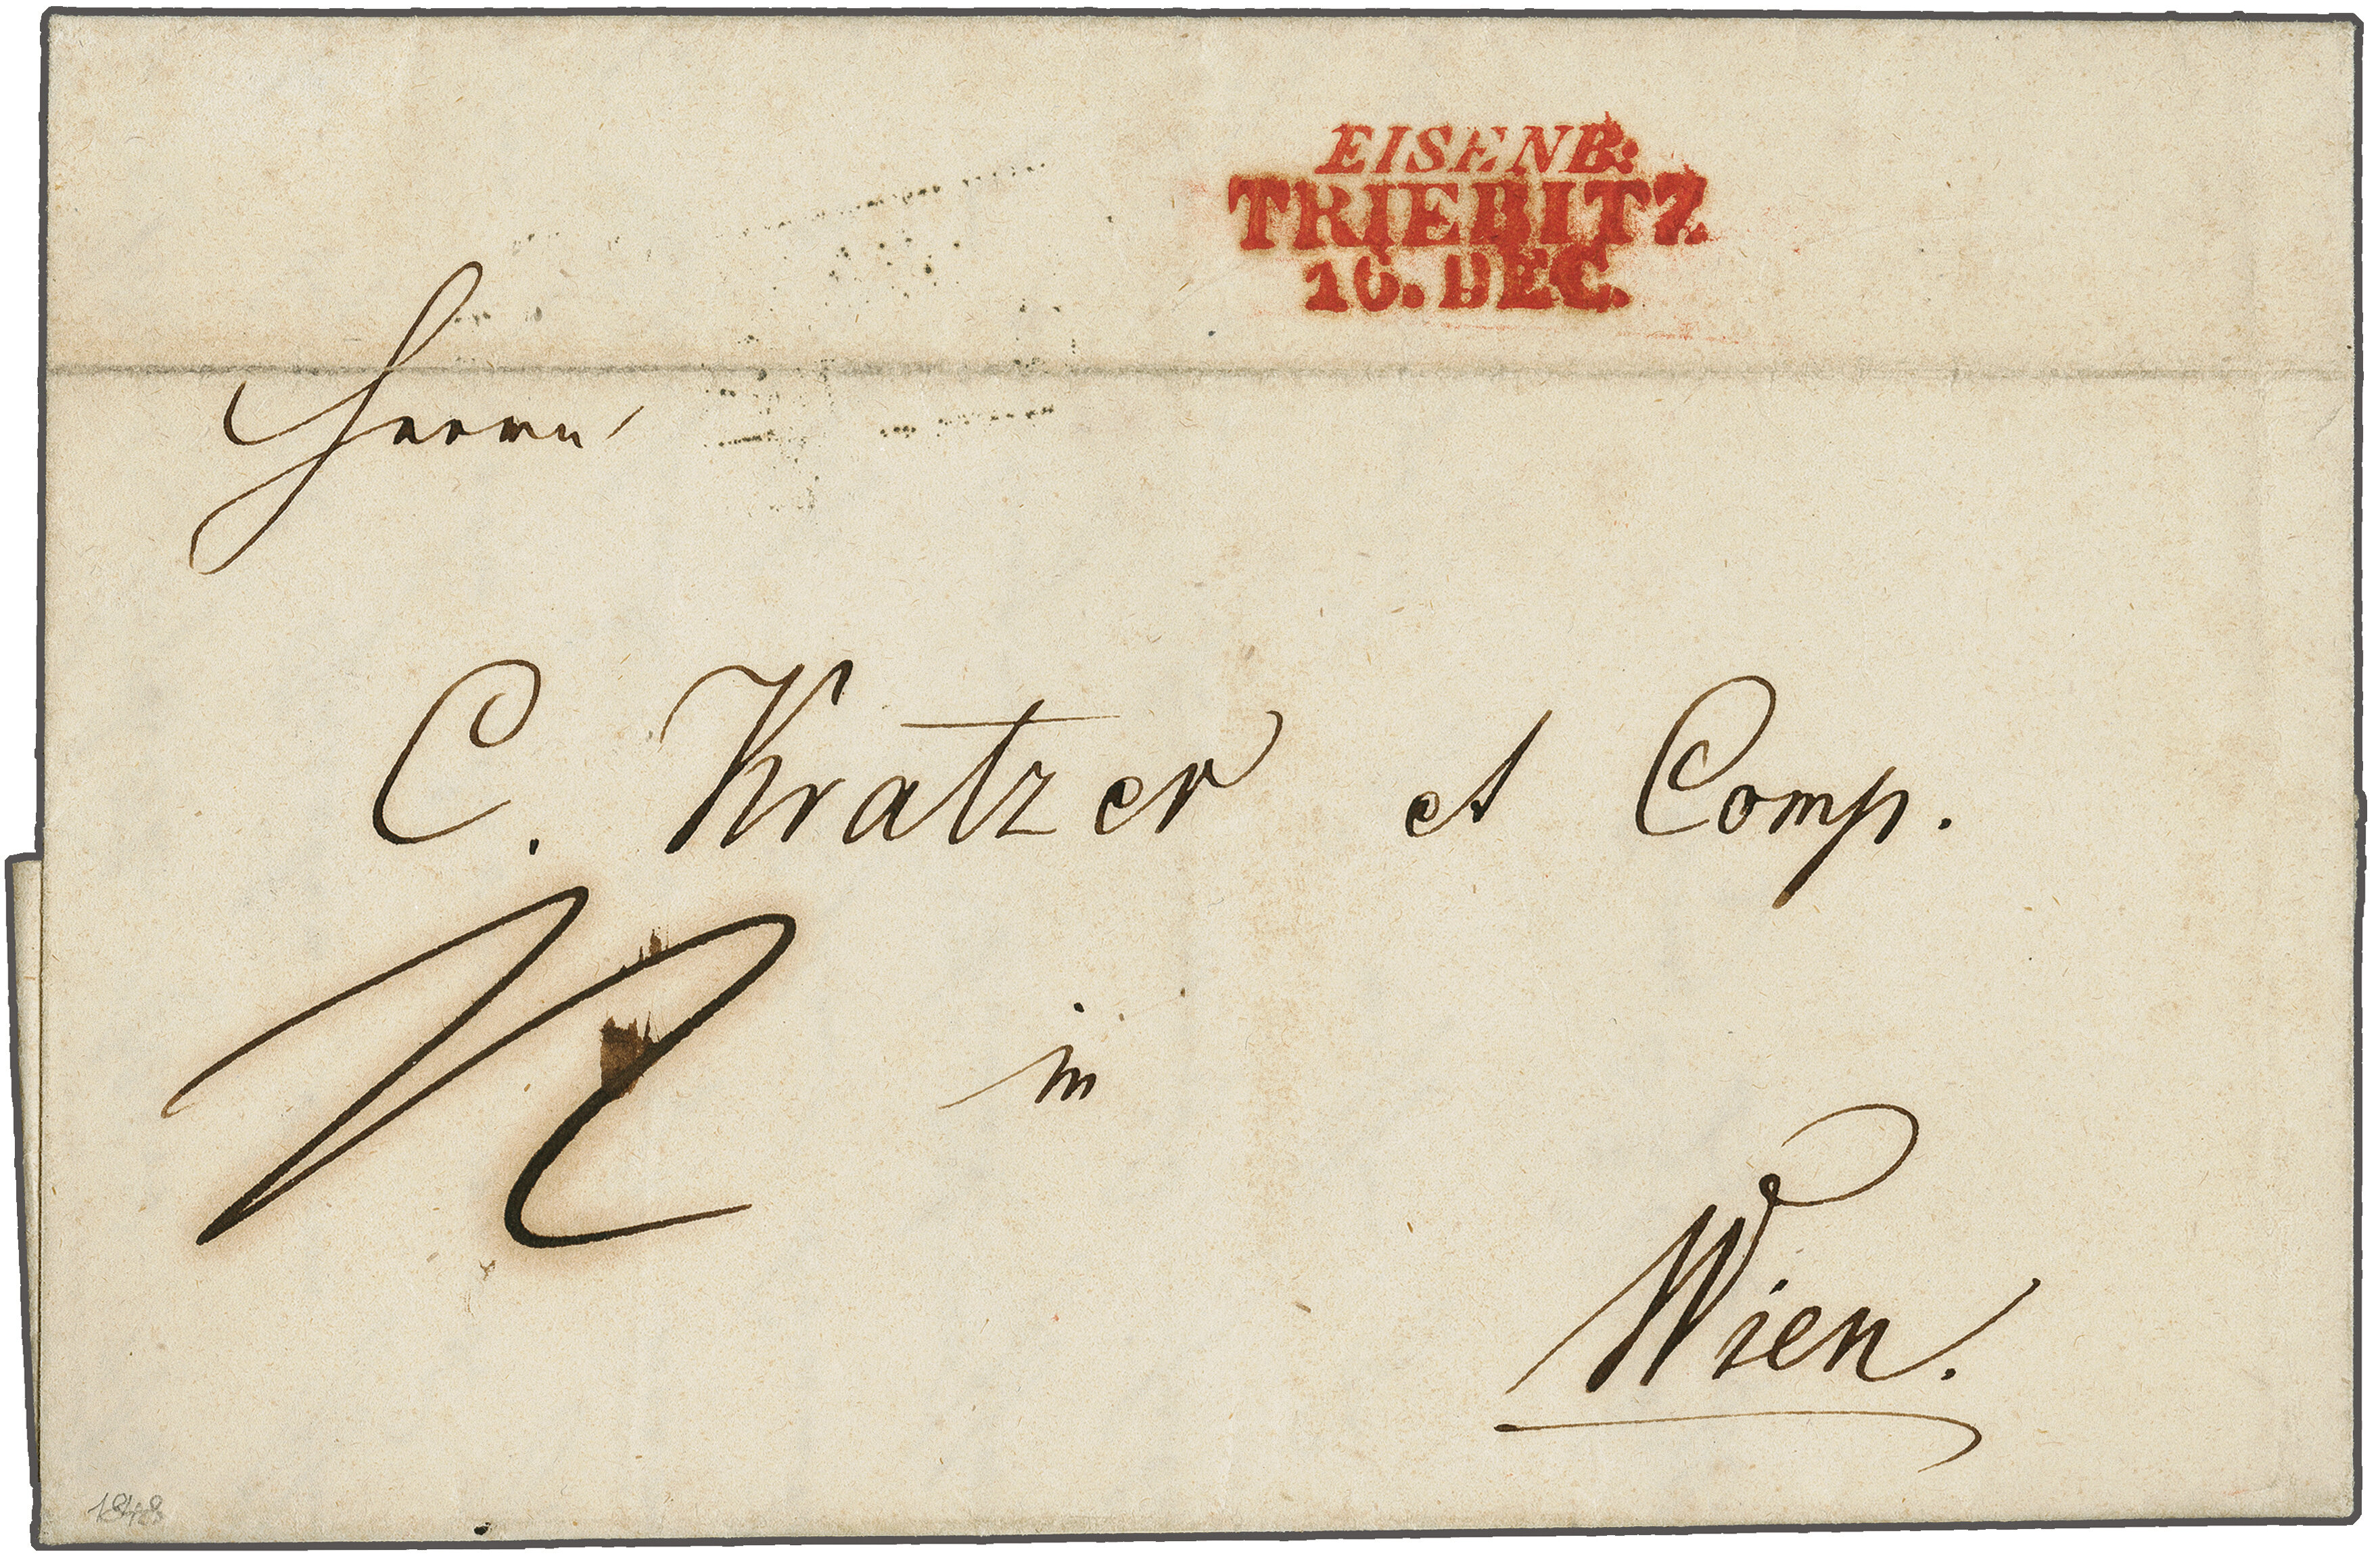 EISENB:
TRIEBITZ.
16. DEC.
Herrn
C. Kratzer et Comp.
12
in
Wien.
1848